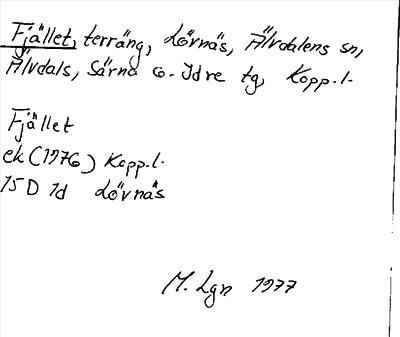 Fjället, terräng, Lövnäs, Älvdalens sn,
Älvdals, Särna o. Idre tg, Kopp.l.
Fjället
ek (1976) Kopp.l.
15D 1d Lövnäs
M. Lgn 1977